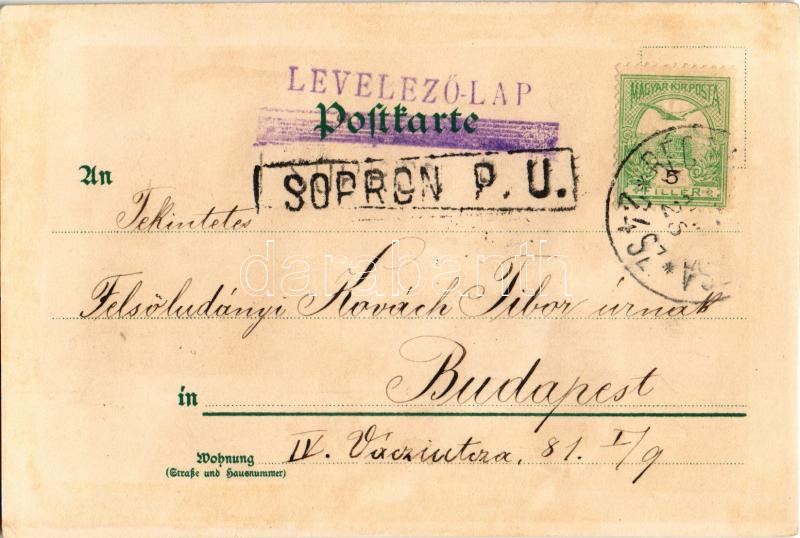 LEVELEZŐ-LAP
Postkarte
MAGYAR KIR. POSTA
5
FILLER
An
SOPRON P. U.
Tekintetes
Felsöludányi Kovách Tibor úrnak
in
Budapest
Wohnung
(Straße und Hausnummer)
IV. Vácziutcza, 81. I/9
darabanth